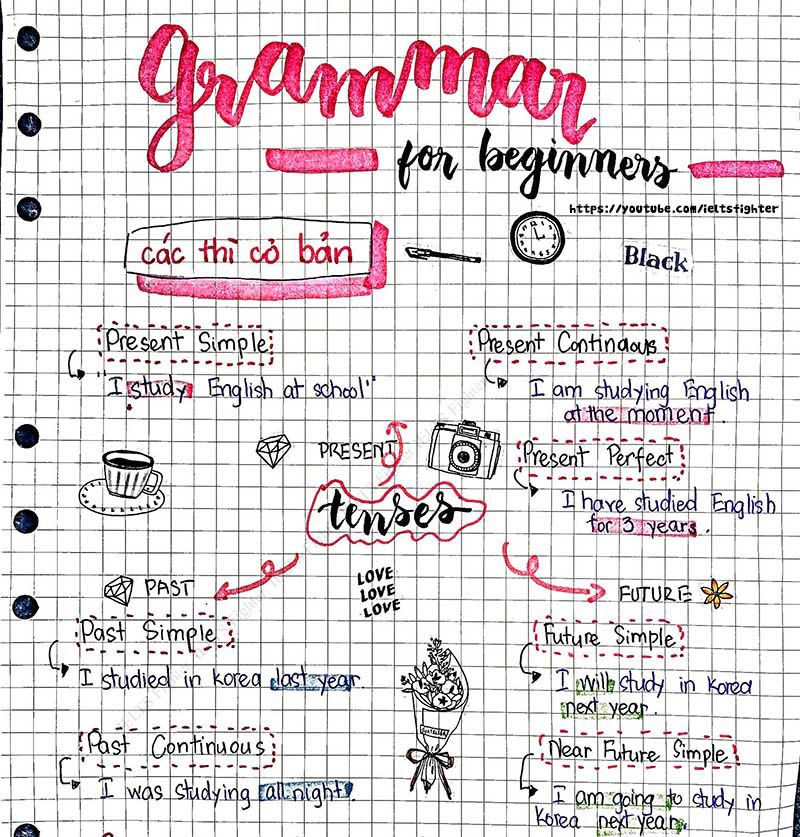 grammar
for beginners
https://youtube.com/ieltsfighter
các thì cỏ bản
Black
Present Simple
"I study English at school"
Present Continuous
I am studying English
at the moment.
PRESENT
Present Perfect
I have studied English
for 3 years.
tenses
PAST
LOVE
LOVE
LOVE
FUTURE
Past Simple
I studied in korea last year
Future Simple
I will study in korea
next year.
Past Continuous
I was studying all night.
Near Future Simple
I am going to study in
korea next year.